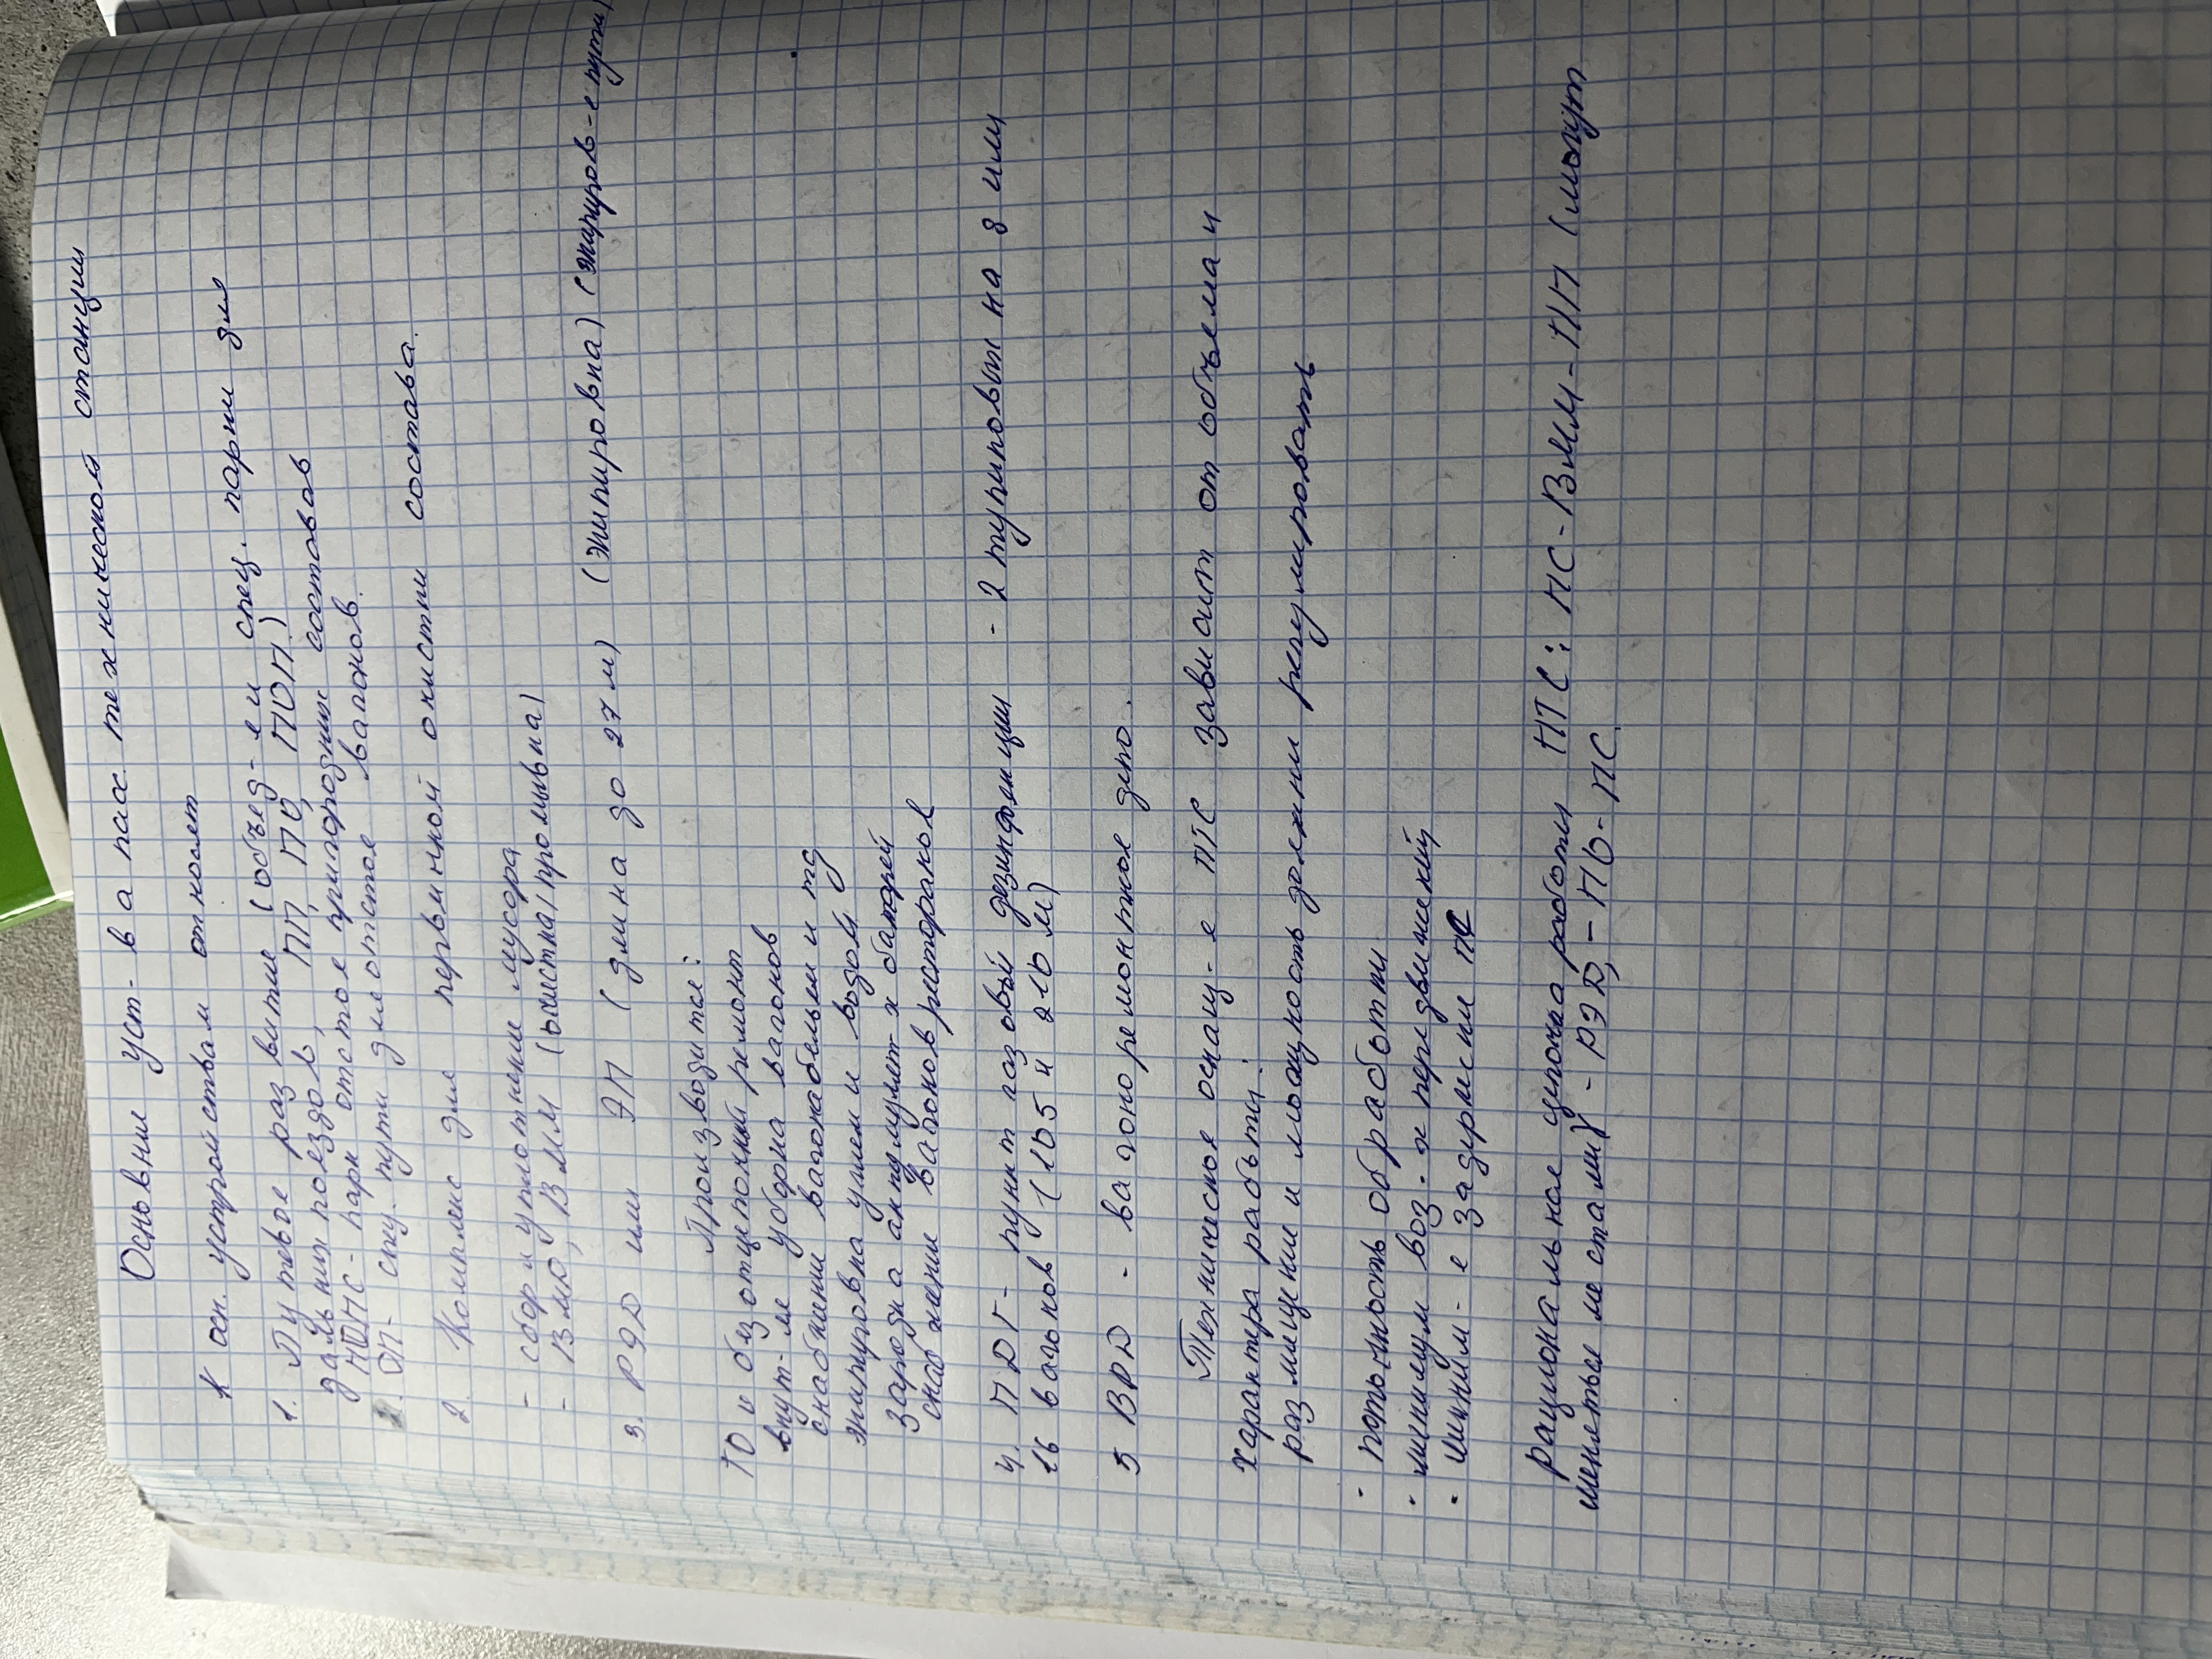 Основные уст-ва пасс технической станции
К осн. устройствам относят
1. Путевое развитие (объед-е и спец. парки для
дальних поездов, ПП, ПО, ПОП)
- парк отстоя пригородных составов
2. ОП- спец. пути для отстоя вагонов.
2. Комплекс для первичной очистки состава.
- сбор и уплотнение мусора
- ВМО, ВММ (очистка/промывка)
3. РЭД или ЭП (длина до 27м) (экипировка) (экипиров-е пути)
Производится:
ТО и безотцепочный ремонт
внут-яя уборка вагонов
снабжении вагонабельем и тд
экипировка углем и водой
зарядка аккумулят-х батарей
снабжении вагонов ресторанов
4. ПДГ- пункт газовый дезинфекции - 2 тупиковых на 8 или
16 вагонов (105 и 210 м)
5 ВРД - вагоноремонтное депо.
Техническое оснащ-е ПТС зависит от объема и
характера работы.
размещении и мощность должны регулировать
· поточность обработки
· минимум воз-х передвижений
· миним-е задержки ПС
рациональное цепочка работы ПТС: ПС-ВММ-ПП (могут
меняться местами) - РЭД, - ПО-ПС.